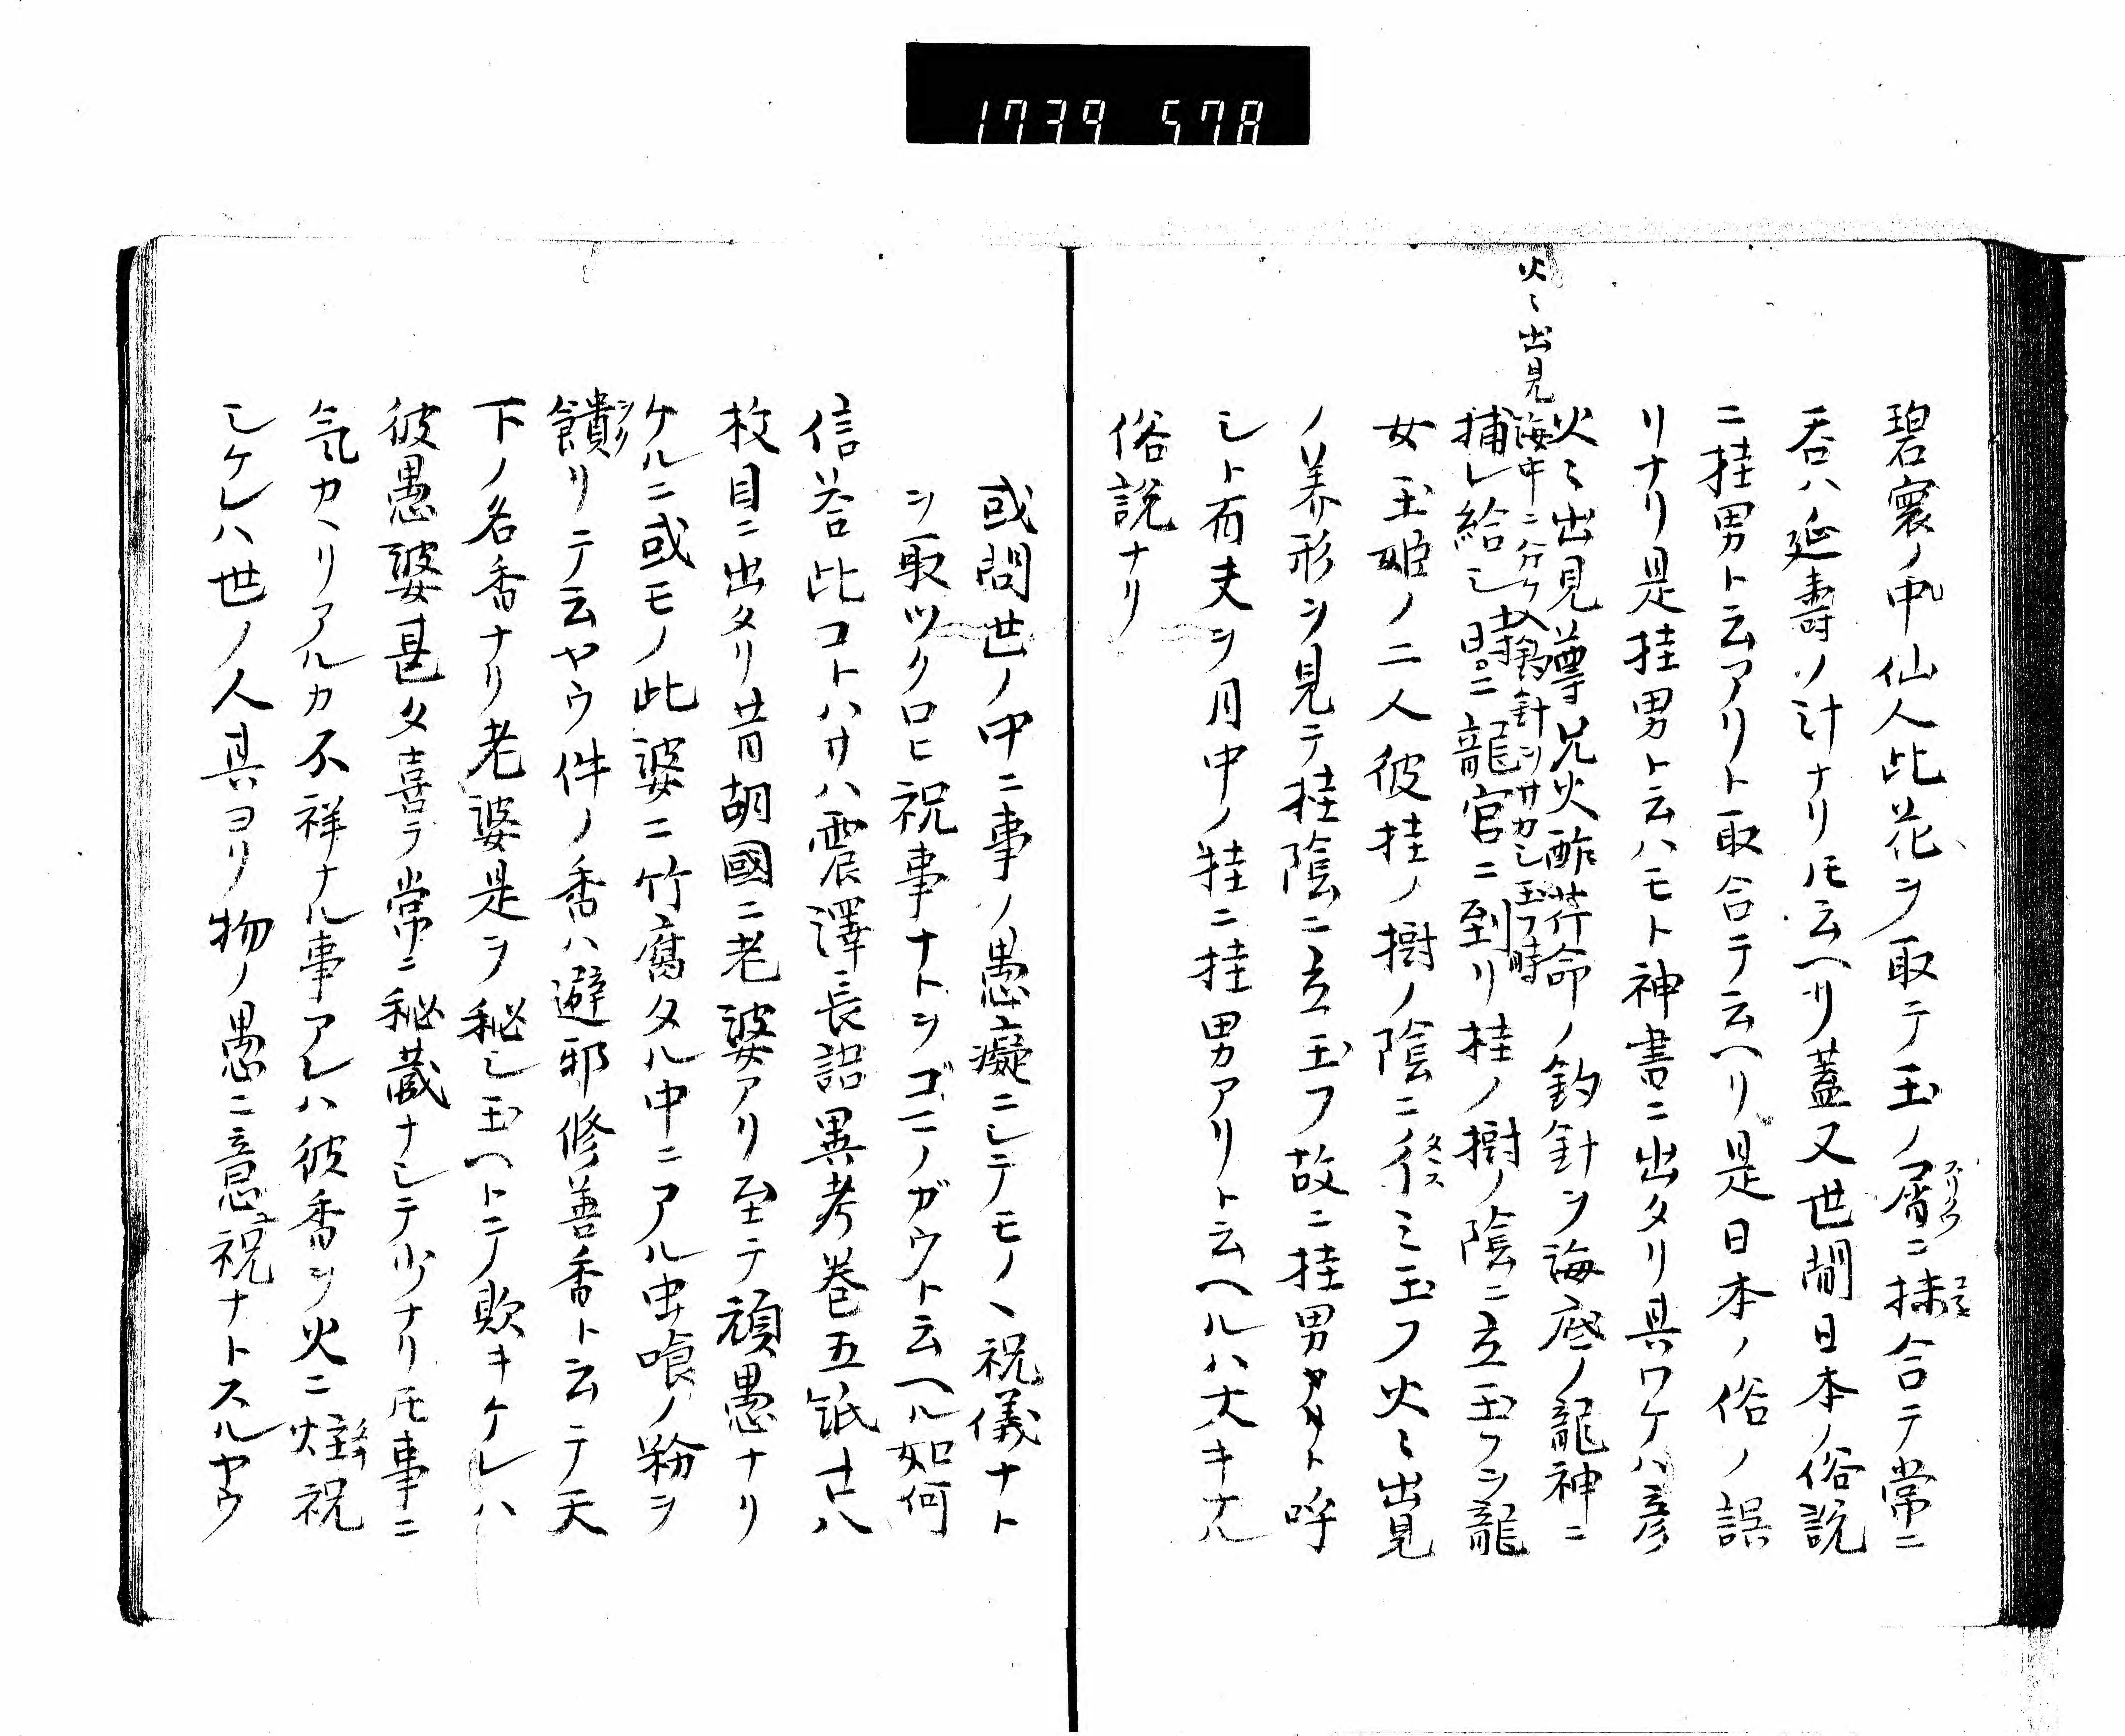 1739 578
碧寰ノ中仙人此花ヲ取テ玉ノ屑ニ抹合テ常ニ
呑ハ延壽ノ計ナリトモ云ヘリ蓋又世間日本ノ俗説
ニ桂男ト云アリト取合テ云ヘリ是日本ノ俗ノ誤
リナリ是桂男ト云ハモト神書ニ出タリ具ワケハ彦
火〻出見尊兄火酢芹命ノ釣針ヲ海底ノ龍神ニ
火〻出見海中ニ分ケ入釣針ヲサカシ玉フ時
捕レ給シ時ニ龍宮ニ到リ桂ノ樹ノ陰ニ立玉フヲ龍
女玉姫ノ二人彼桂ノ樹ノ陰ニミ玉フ火〻出見
ノ美形ヲ見テ桂陰ニ立玉フ故ニ桂男ト呼
シト有夫ヲ月中ノ桂ニ桂男アリト云ヘルハ大キナル
俗説ナリ
或問世ノ中ニ事ノ愚癡ニシテモノヽ祝儀ナト
ヲ取ツクロヒ祝事ナトヲゴニノガウト云ヘル如何
信答此コトハサハ震澤長語異考巻五紙廿八
枚目ニ出タリ昔胡國ニ老婆アリ至テ頑愚ナリ
ケルニ或モノ此婆ニ竹腐タル中ニアル虫喰ノ粉ヲ
饋リテ云ヤウ件ノ香ハ避邪修善香ト云テ天
下ノ名香ナリ老婆是ヲ秘シ玉ヘトテ欺キケレハ
彼愚婆甚タ喜テ常ニ秘蔵ナシテ少ナリトモ事ニ
氣カヽリアルカ不祥ナル事アレハ彼香ヲ火ニ炷祝
シケレハ世ノ人具ヨリ物ノ愚ニ意祝ナトスルヤウ